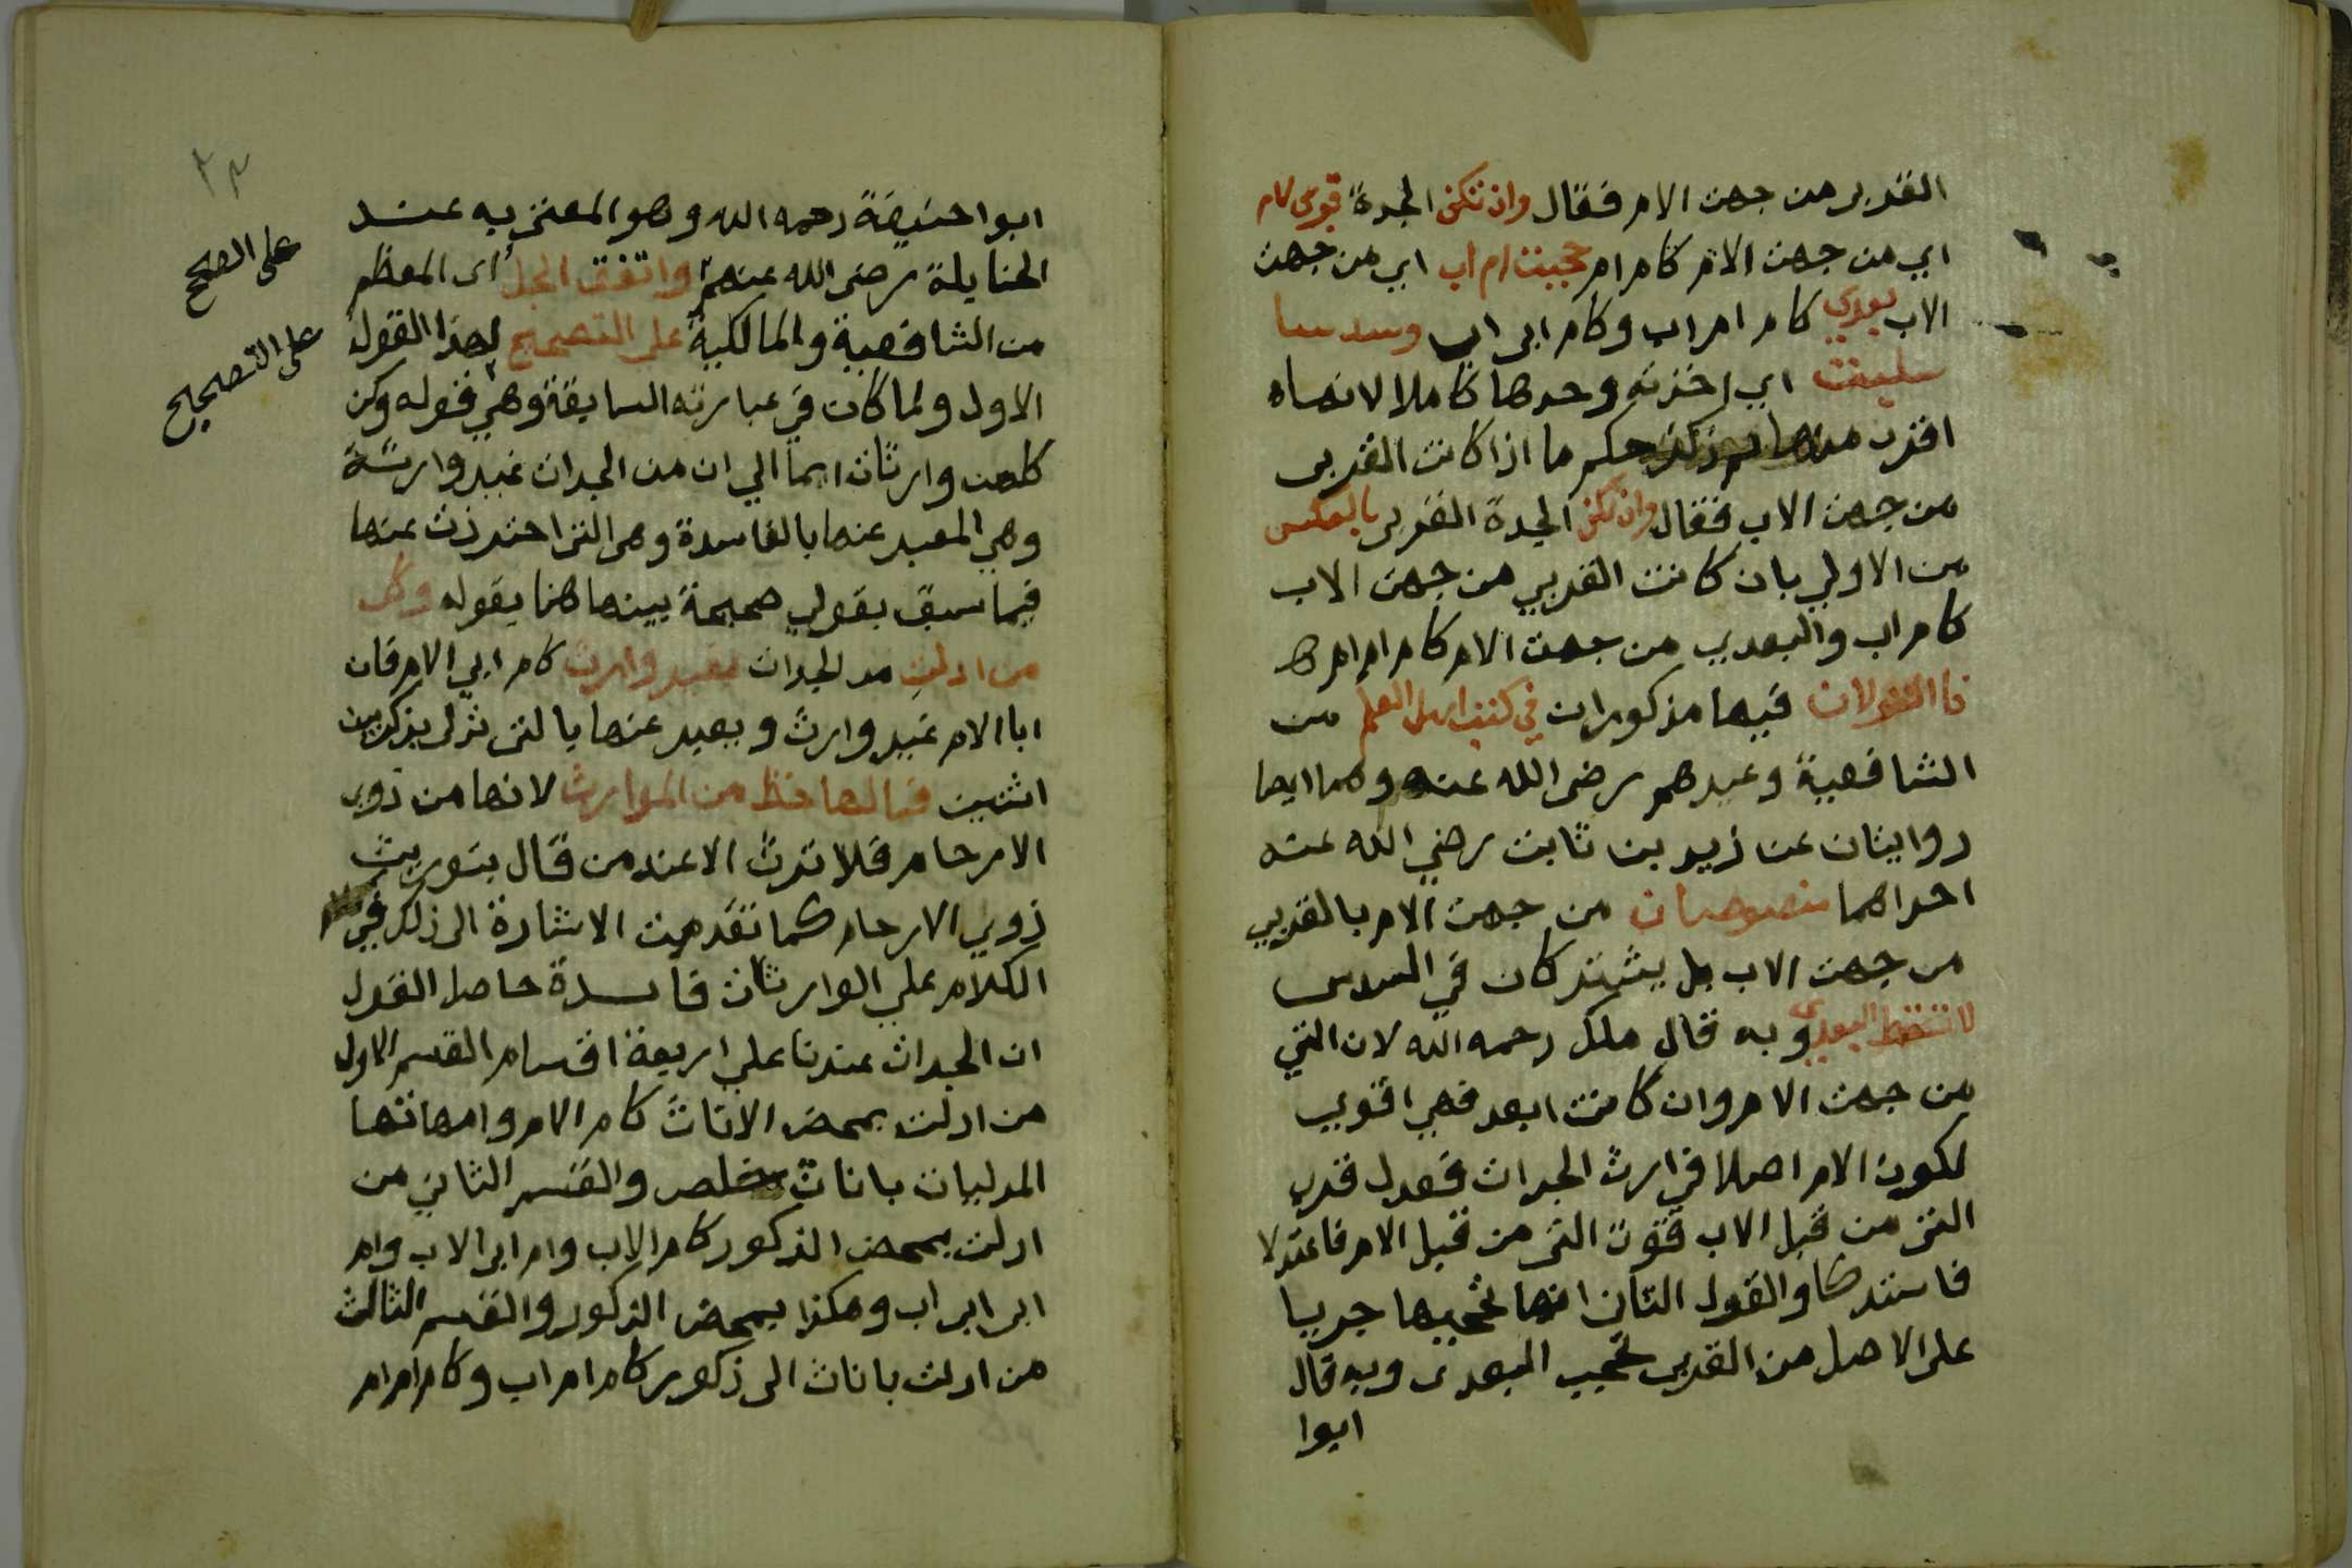 القربى من جهت الام فقال وان تكن الجدة قربى لام
اي من جهت الام كام ام حجبت ام اب اي من جهت
الاب بعدى كام ام اب وكام ابي اب وسدسا
سلبت اي اخذته وحدها كاملا لانها
اقرب منها ثم ذكر حكم ما اذا كانت القربى
من جهت الاب فقال وان تكن الجدة القربى بالعكس
من الاولي بان كانت القربي من جهت الاب
كام اب والبعدي من جهت الام كام ام ام
فالقولان فيها مذكوران في كتب اهل العلم من
الشافعية وغيرهم رضى الله عنه وهما ايضا
روايتان عن زيد بن ثابت رضي الله عنه
احداهما منصوصان من جهت الام بالقربي
من جهت الاب بل يشتركان في السدس
لا تسقط البعدى وبه قال ملك رحمه الله لان التي
من جهت الام وان كانت ابعد فهي اقوي
لكون الام اصلا في ارث الجدات فعدل قرب
التى من قبل الاب قوت التى من قبل الام فاعتدلا
فاشتركا والقول الثان انها تحجبها جريا
على الاصل من القربى تحجب البعدى وبه قال
ابوا
ابوا حنيفة رحمه الله وهو المفتى به عند
الحنابلة رضى الله عنهم واتفق الجل اى المعظم
من الشافعية والمالكية على التصحيح لهذا القول
على الصحيح
على التصحيح
الاول ولما كان في عبارته السابقة وهي قوله وكن
كلهن وارثات ايما الي ان من الجدات غير وارثة
وهي المعبر عنها بالفاسدة وهى التى احترزت عنها
فيما سبق بقولي صحيحة بينها هنا بقوله وكل
من ادلت من الجدات بغير وارث كام ابي الام فان
ابا الام غير وارث ويعبر عنها بالتى تدلى بذكر بين
انثيين فما لها حظ من الموارث لانها من ذوى
الارحام فلا ترث الا عند من قال بتوريث
ذوي الارحام كما تقدمت الاشارة الى ذلك في
الكلام علي الوارثات فائدة حاصل القول
ان الجدات عندنا علي اربعة اقسام القسم الاول
من ادلت بمحض الاناث كام الام وامهاتها
المدليات باناث خلص والقسم الثاني من
ادلت بمحض الذكور كام الاب وام ابى الاب وام
ابى ابى اب وهكذا بمحض الذكور والقسم الثالث
من ادلت باناث الى ذكور كام ام اب وكام ام ام